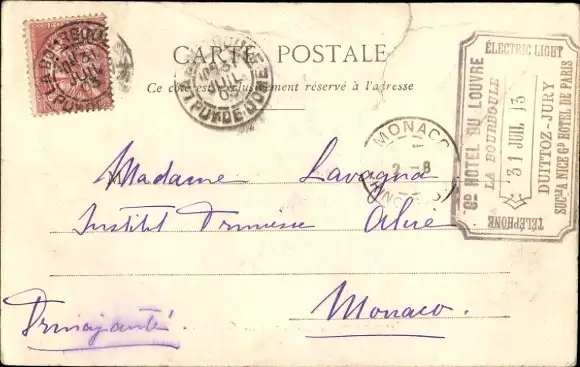 CARTE POSTALE
Ce côté est exclusivement réservé à l'adresse
LA BOURBOULE
PUY-DE-DOME
MONACO
2 - 8
ELECTRIC LIGHT
Gd HOTEL DU LOUVRE
LA BOURBOULE
31 JUIL 13
DUITTOZ-JURY
SUCle A NICE Gd HOTEL DE PARIS
TÉLÉPHONE
Madame Lavagna
Institut
Monaco.